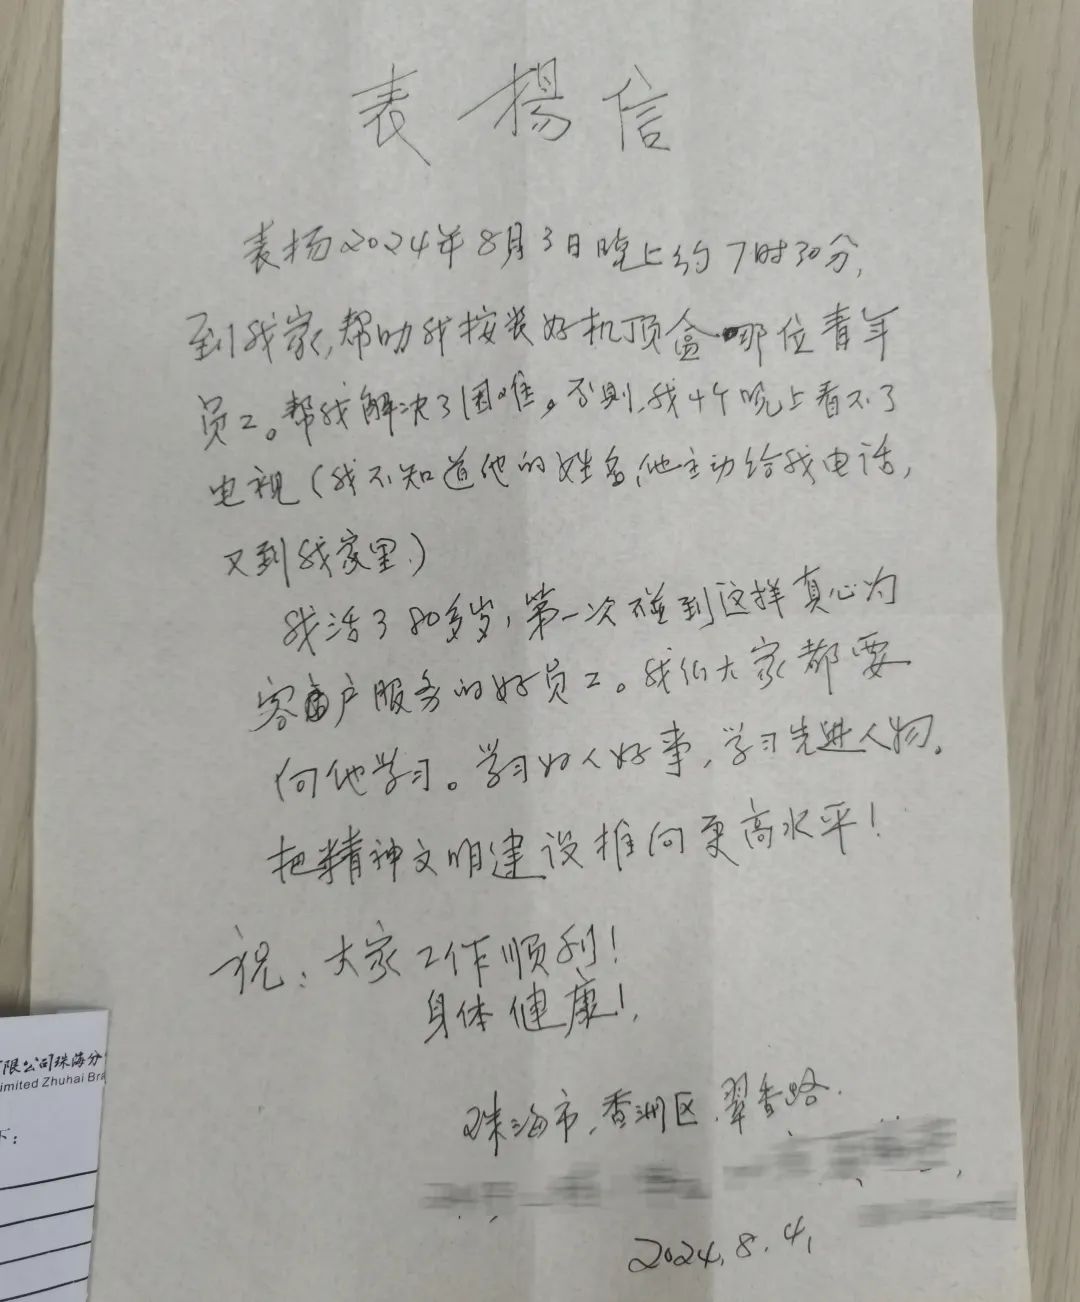 表揚信
表扬2024年8月3日晚上约7时30分,
到我家,帮助我按装好机顶盒哪位青年
员工。帮我解决了困难。否则,我4个晚上看不了
电视(我不知道他的姓名,他主动给我电话,
又到我家里.)
我活了80多岁,第一次碰到这样真心为
客户服务的好员工。我们大家都要
向他学习。学习好人好事,学习先进人物.
把精神文明建设推向更高水平!
祝:大家工作顺利!
身体健康!
珠海市,香洲区.翠香路.
2024.8.4.
有限公司珠海分
imited Zhuhai Bra
下: